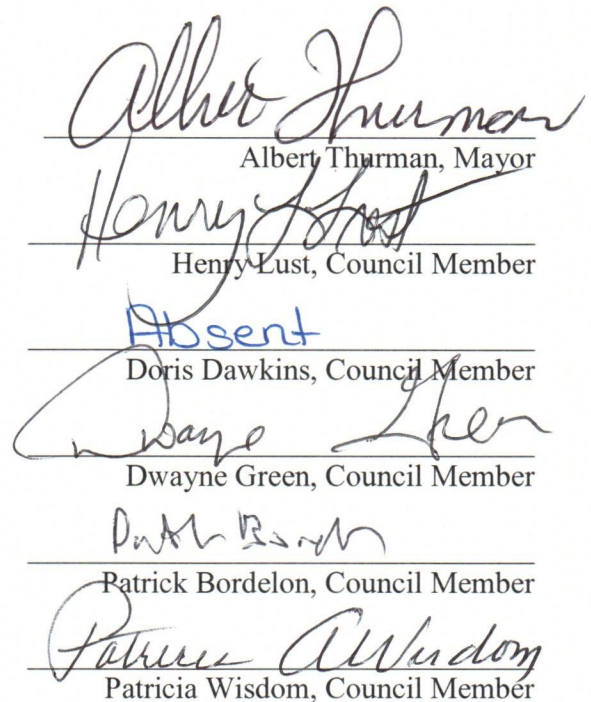 Albert Thurman
Albert Thurman, Mayor
Henry L Lust
Henry Lust, Council Member
Absent
Doris Dawkins, Council Member
Dwayne Green
Dwayne Green, Council Member
Patrick Bordelon, Council Member
Patricia A Wisdom
Patricia Wisdom, Council Member